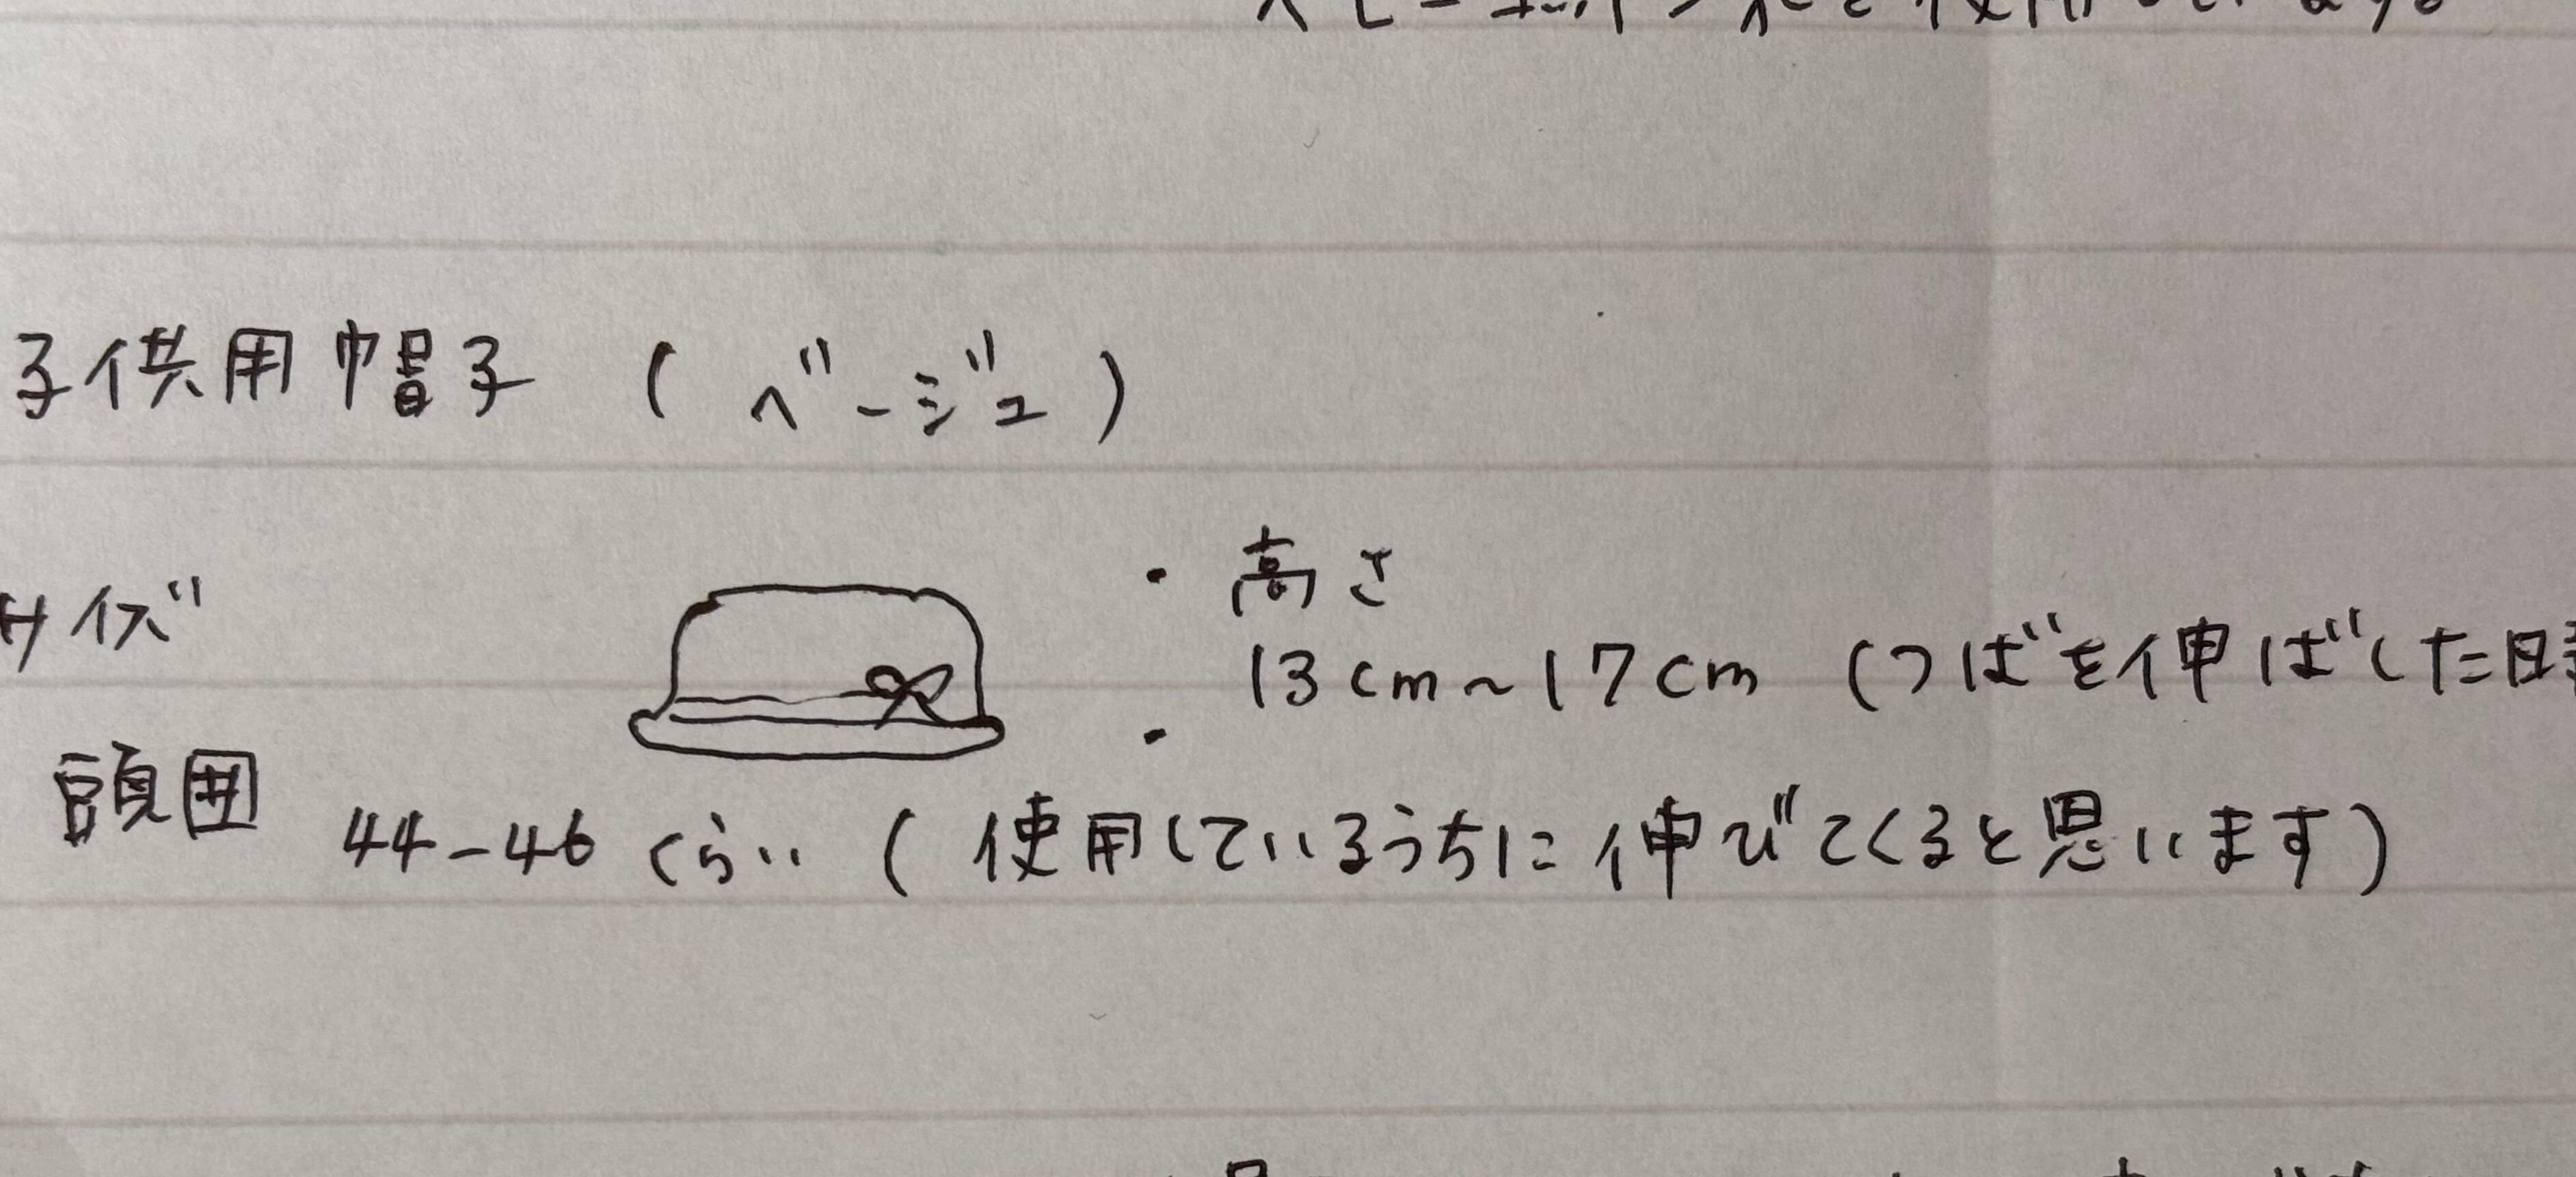 子供用帽子 (ベージュ)
サイズ
・高さ
13cm~17cm (つばを伸ばした時
・
頭囲 44-46 くらい (使用しているうちに伸びてくると思います)